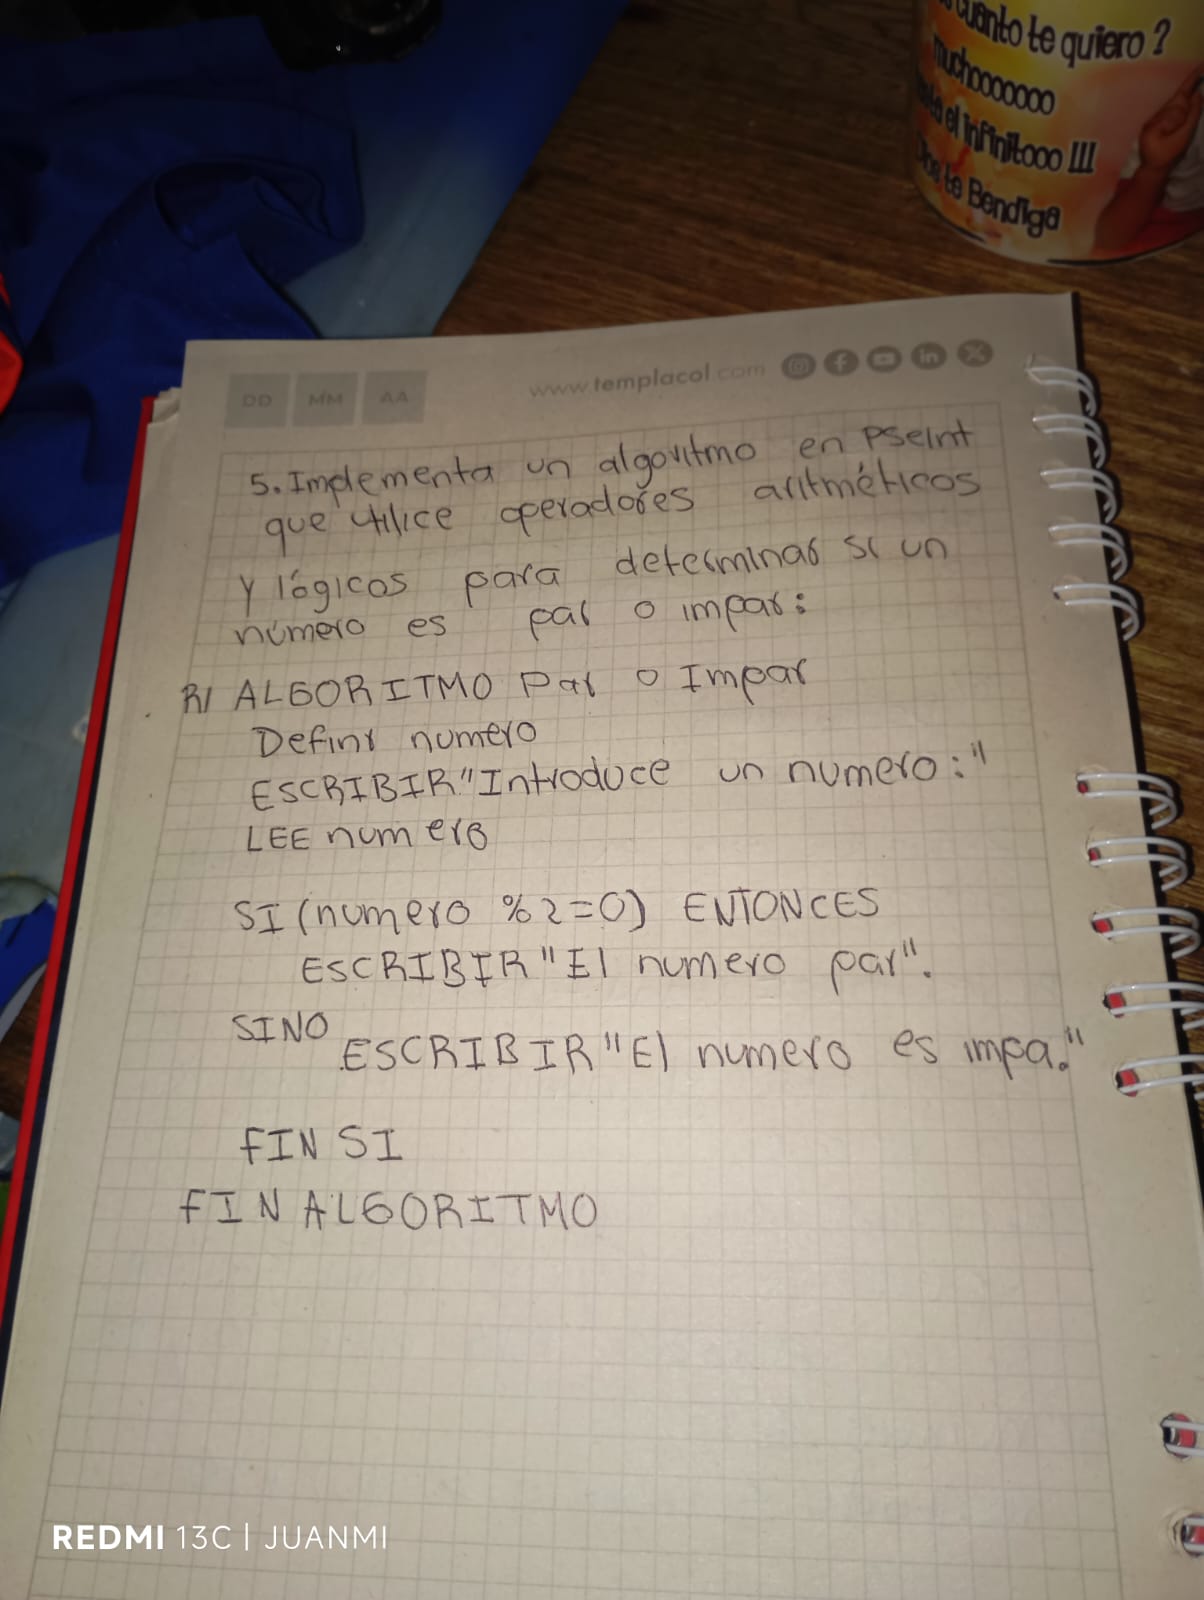 cuanto te quiero ?
muchooooooo
el infinitooo !!!
te Bendiga
DD MM AA
www.templacol.com
5. Implementa un algoritmo en PseInt
que utilice operadores aritméticos
Y lógicos para determinar si un
número es par o impar:
R/ ALGORITMO Par o Impar
Definir numero
ESCRIBIR "Introduce un numero:"
LEE numero
SI (numero %2=0) ENTONCES
ESCRIBIR "El numero par".
SINO
ESCRIBIR "El numero es impa."
FIN SI
FIN ALGORITMO
REDMI 13C | JUANMI